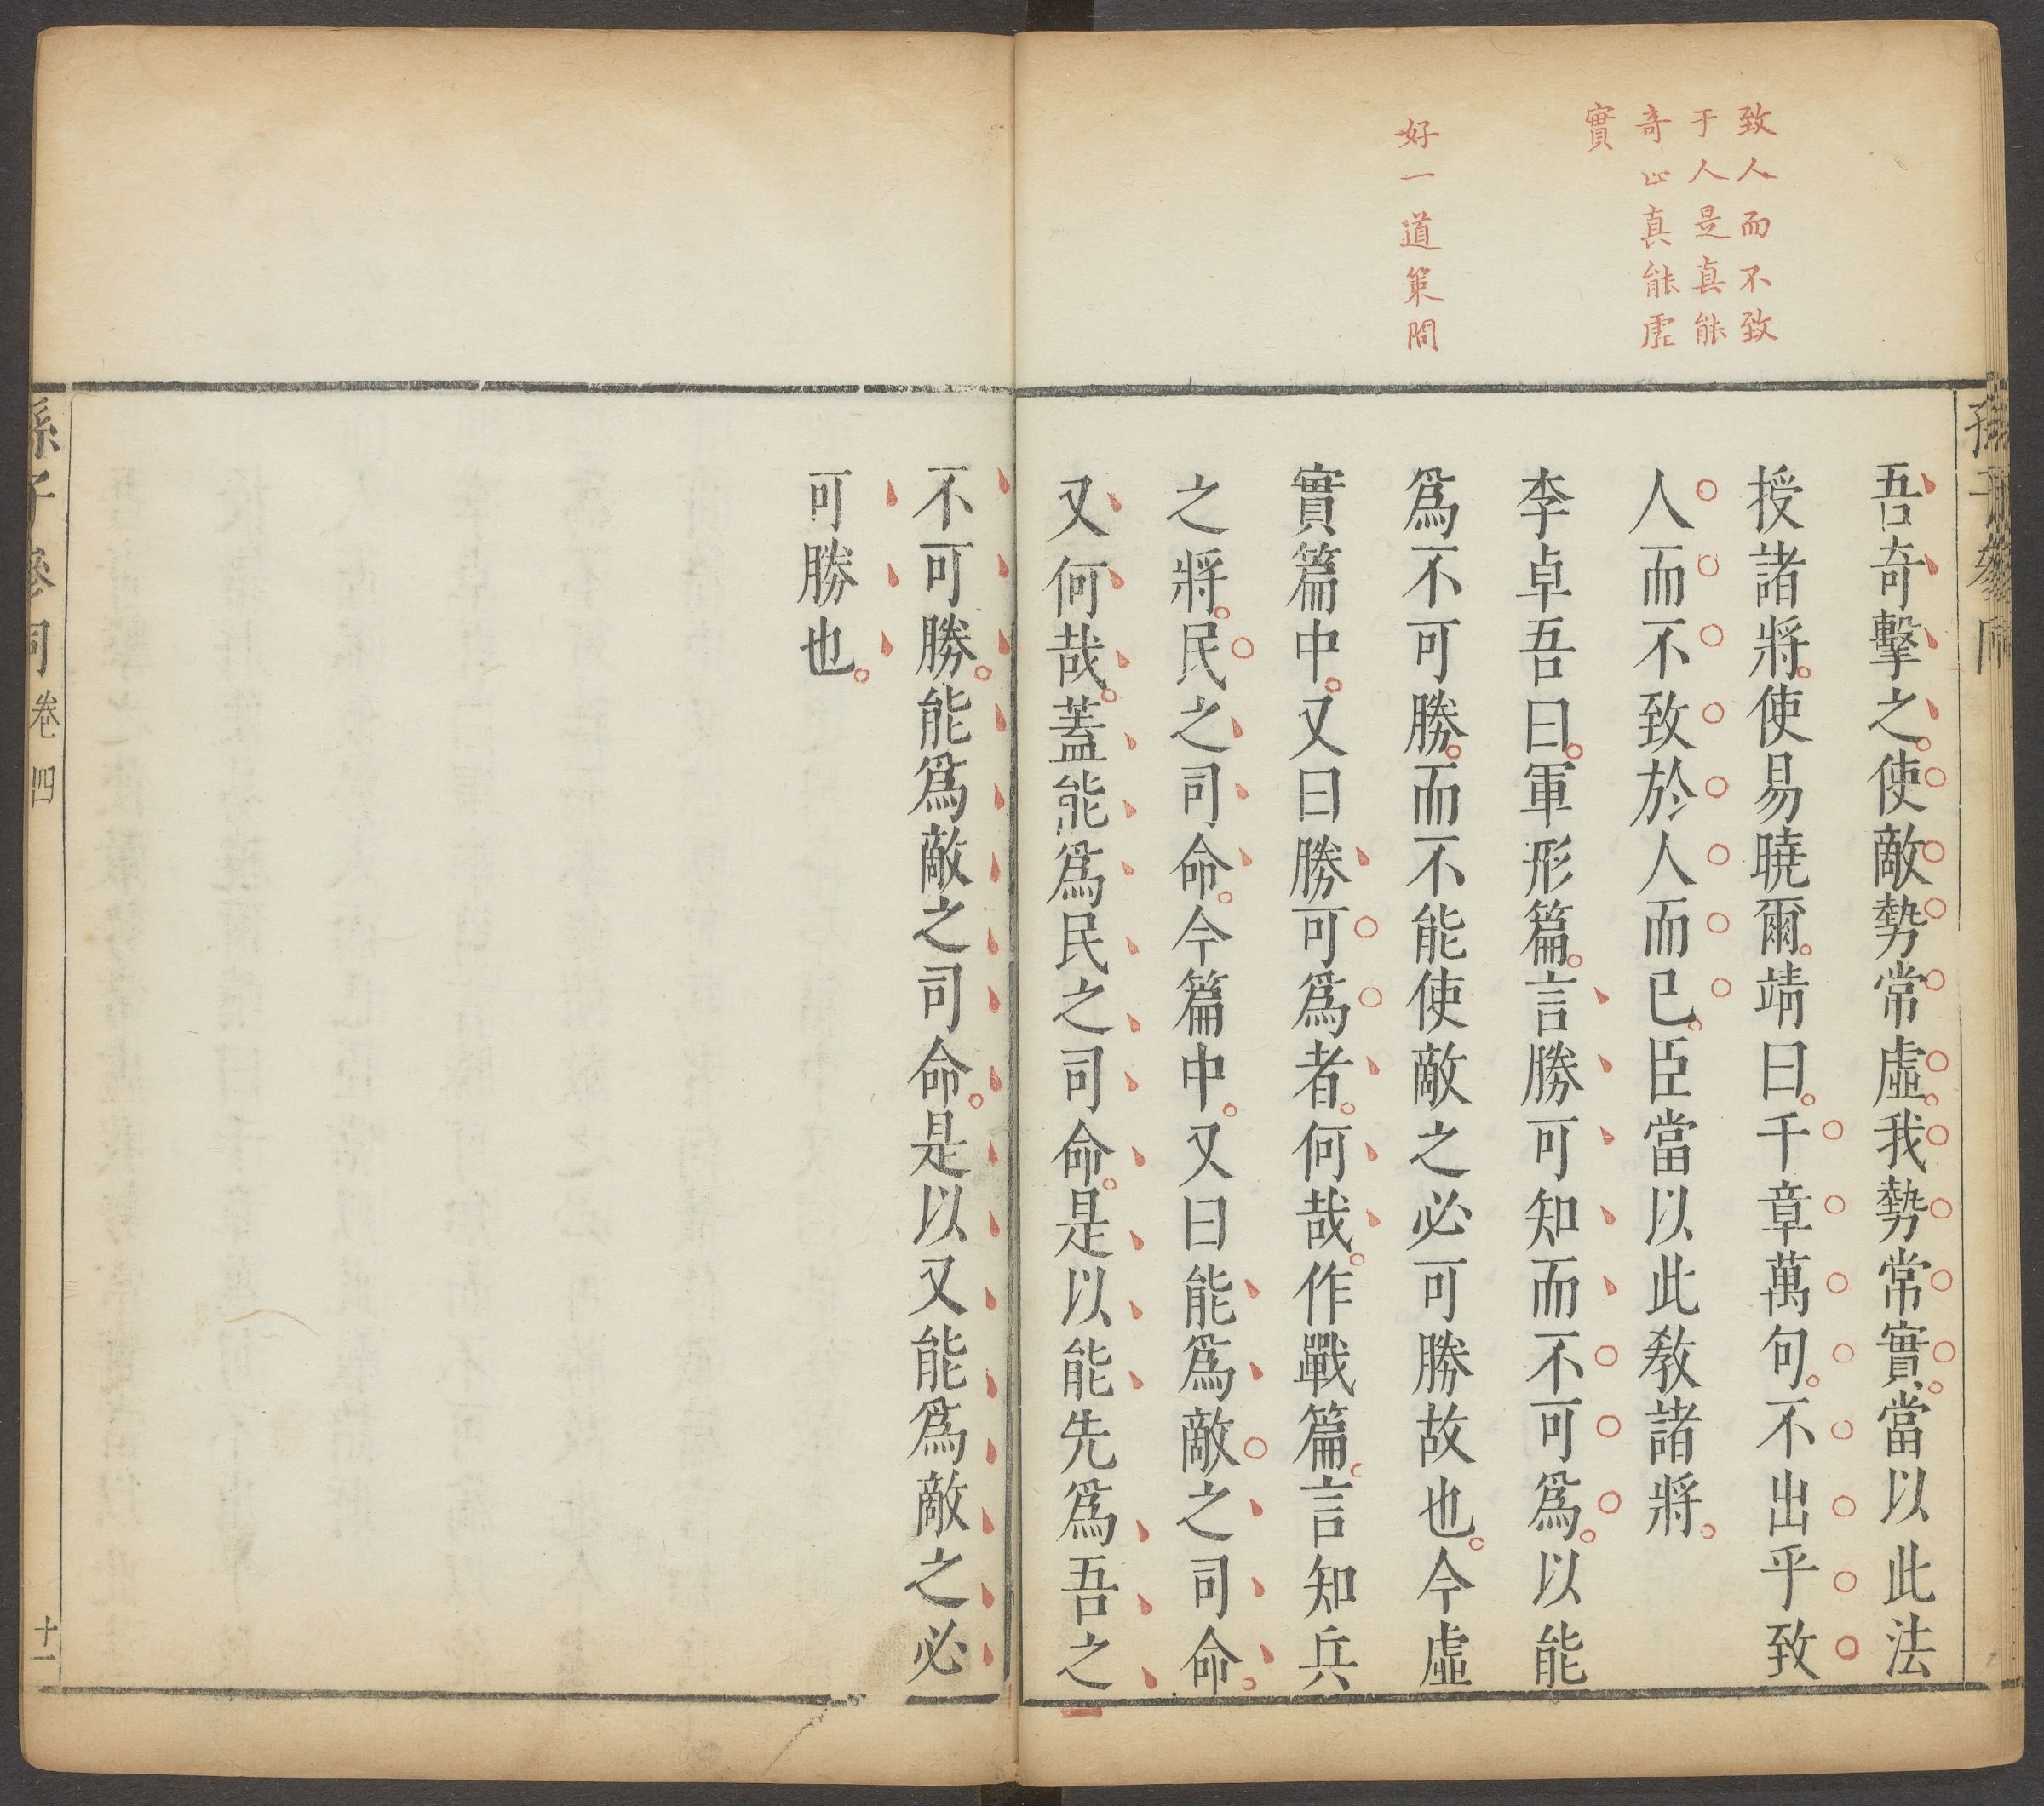 致人而不致
于人是真能
奇正真能虛
實
好一道策問
吾奇擊之使敵勢常虛我勢常實當以此法
授諸將使易曉爾靖曰千章萬句不出乎致
人而不致於人而已臣當以此教諸將
李卓吾曰軍形篇言勝可知而不可爲以能
爲不可勝而不能使敵之必可勝故也今虛
實篇中又曰勝可爲者何哉作戰篇言知兵
之將民之司命今篇中又曰能爲敵之司命
又何哉蓋能爲民之司命是以能先爲吾之
不可勝能爲敵之司命是以又能爲敵之必
可勝也
孫子參同 卷四 十一